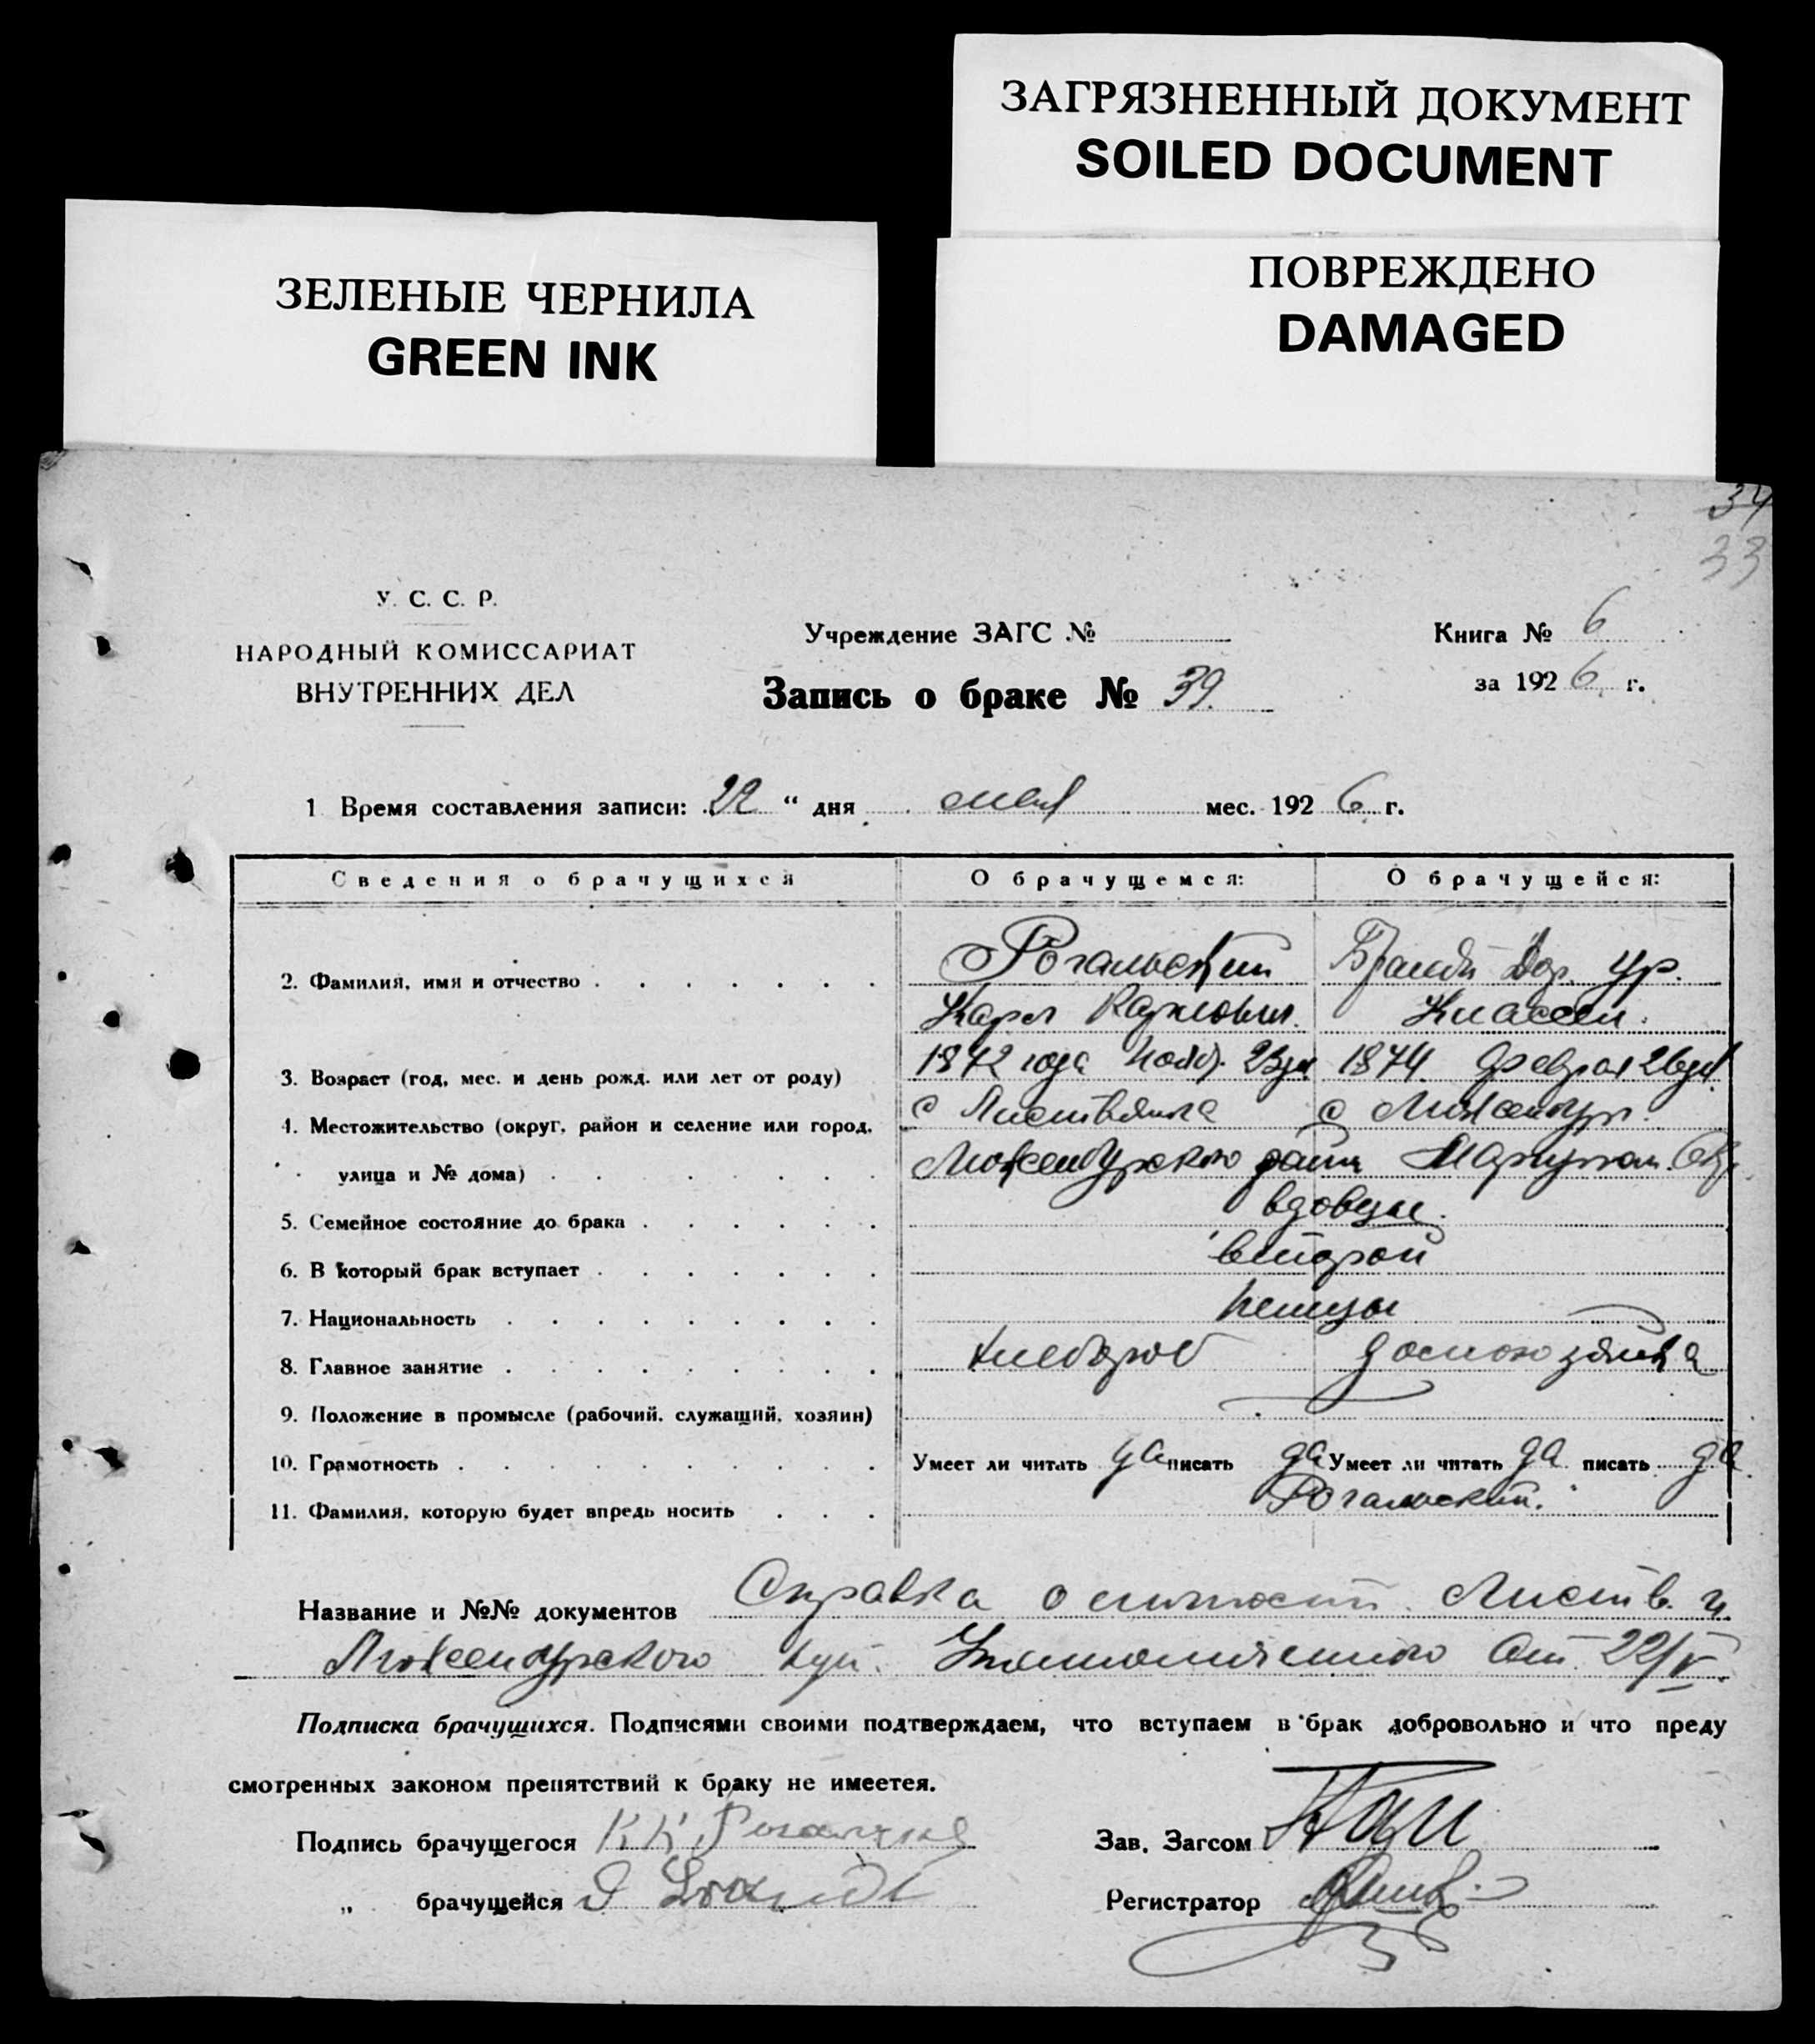 ЗАГРЯЗНЕННЫЙ ДОКУМЕНТ
SOILED DOCUMENT
ЗЕЛЕНЫЕ ЧЕРНИЛА
GREEN INK
ПОВРЕЖДЕНО
DAMAGED
34
33
У. С. С. Р.
НАРОДНЫЙ КОМИССАРИАТ
ВНУТРЕННИХ ДЕЛ
Учреждение ЗАГС №
Запись о браке № 39.
Книга № 6
за 1926 г.
1 Время составления записи: 22 " дня мая мес. 1926 г.
Сведения о брачущихся О брачущемся: О брачущейся:
2. Фамилия, имя и отчество Рогальский Брандт Дор. Ур.
Карл Карлович Классен.
3. Возраст (год, мес. и день рожд. или лет от роду) 1872 года 23 1874 февраля 26 дня
4. Местожительство (округ, район и селение или город, с Листвянка с
улица и № дома) Люксембургского района Мариупол. Окр.
5. Семейное состояние до брака вдовцы.
6. В который брак вступает второй
7. Национальность немцы
8. Главное занятие хлебороб домохозяйка
9. Положение в промысле (рабочий, служащий, хозяин)
10. Грамотность Умеет ли читать да писать да Умеет ли читать да писать да
11. Фамилия, которую будет впредь носить Рогальский.
Название и №№ документов Справка о личности Листв. и
Люксембургского Уполномоченного от 22/V.
Подписка брачущихся. Подписями своими подтверждаем, что вступаем в брак добровольно и что преду
смотренных законом препятствий к браку не имеется.
Подпись брачущегося К К Зав. Загсом
„ брачущейся D Brandt Регистратор